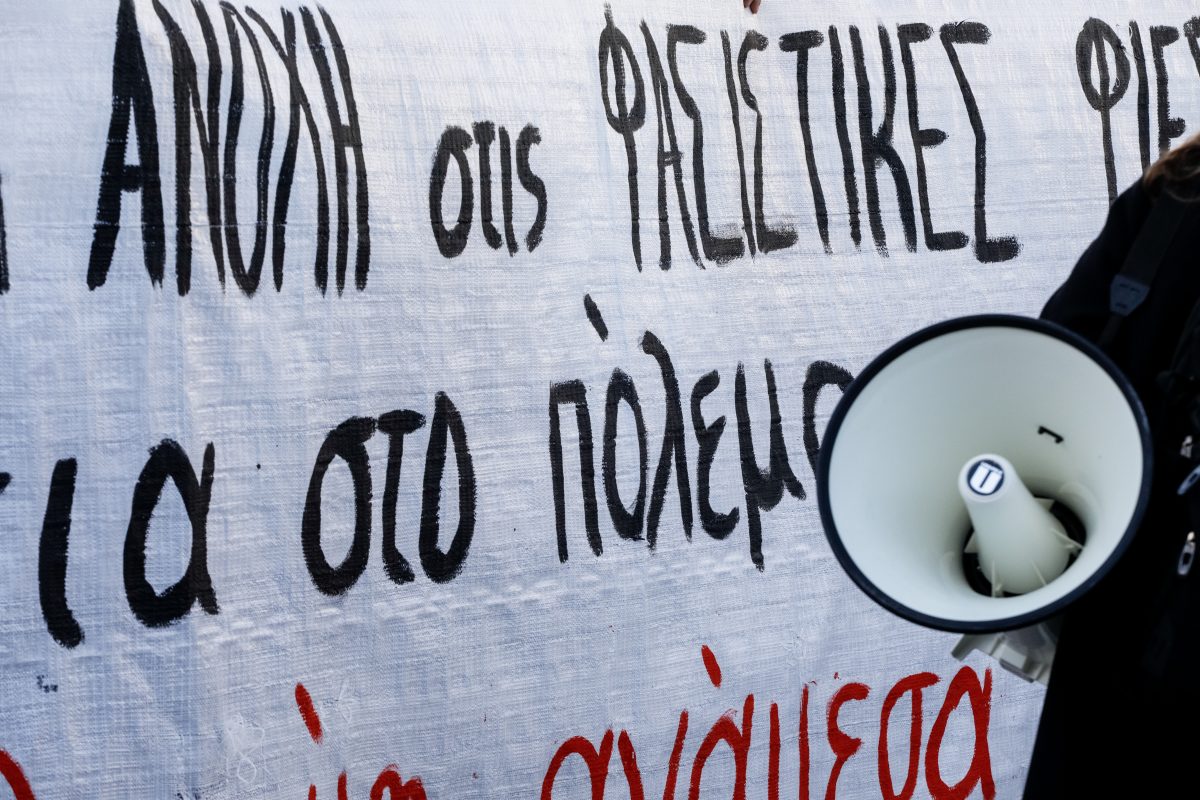 ΑΝΟΧΗ στις ΦΑΣΙΣΤΙΚΕΣ
στο πόλεμο
ανάμεσα